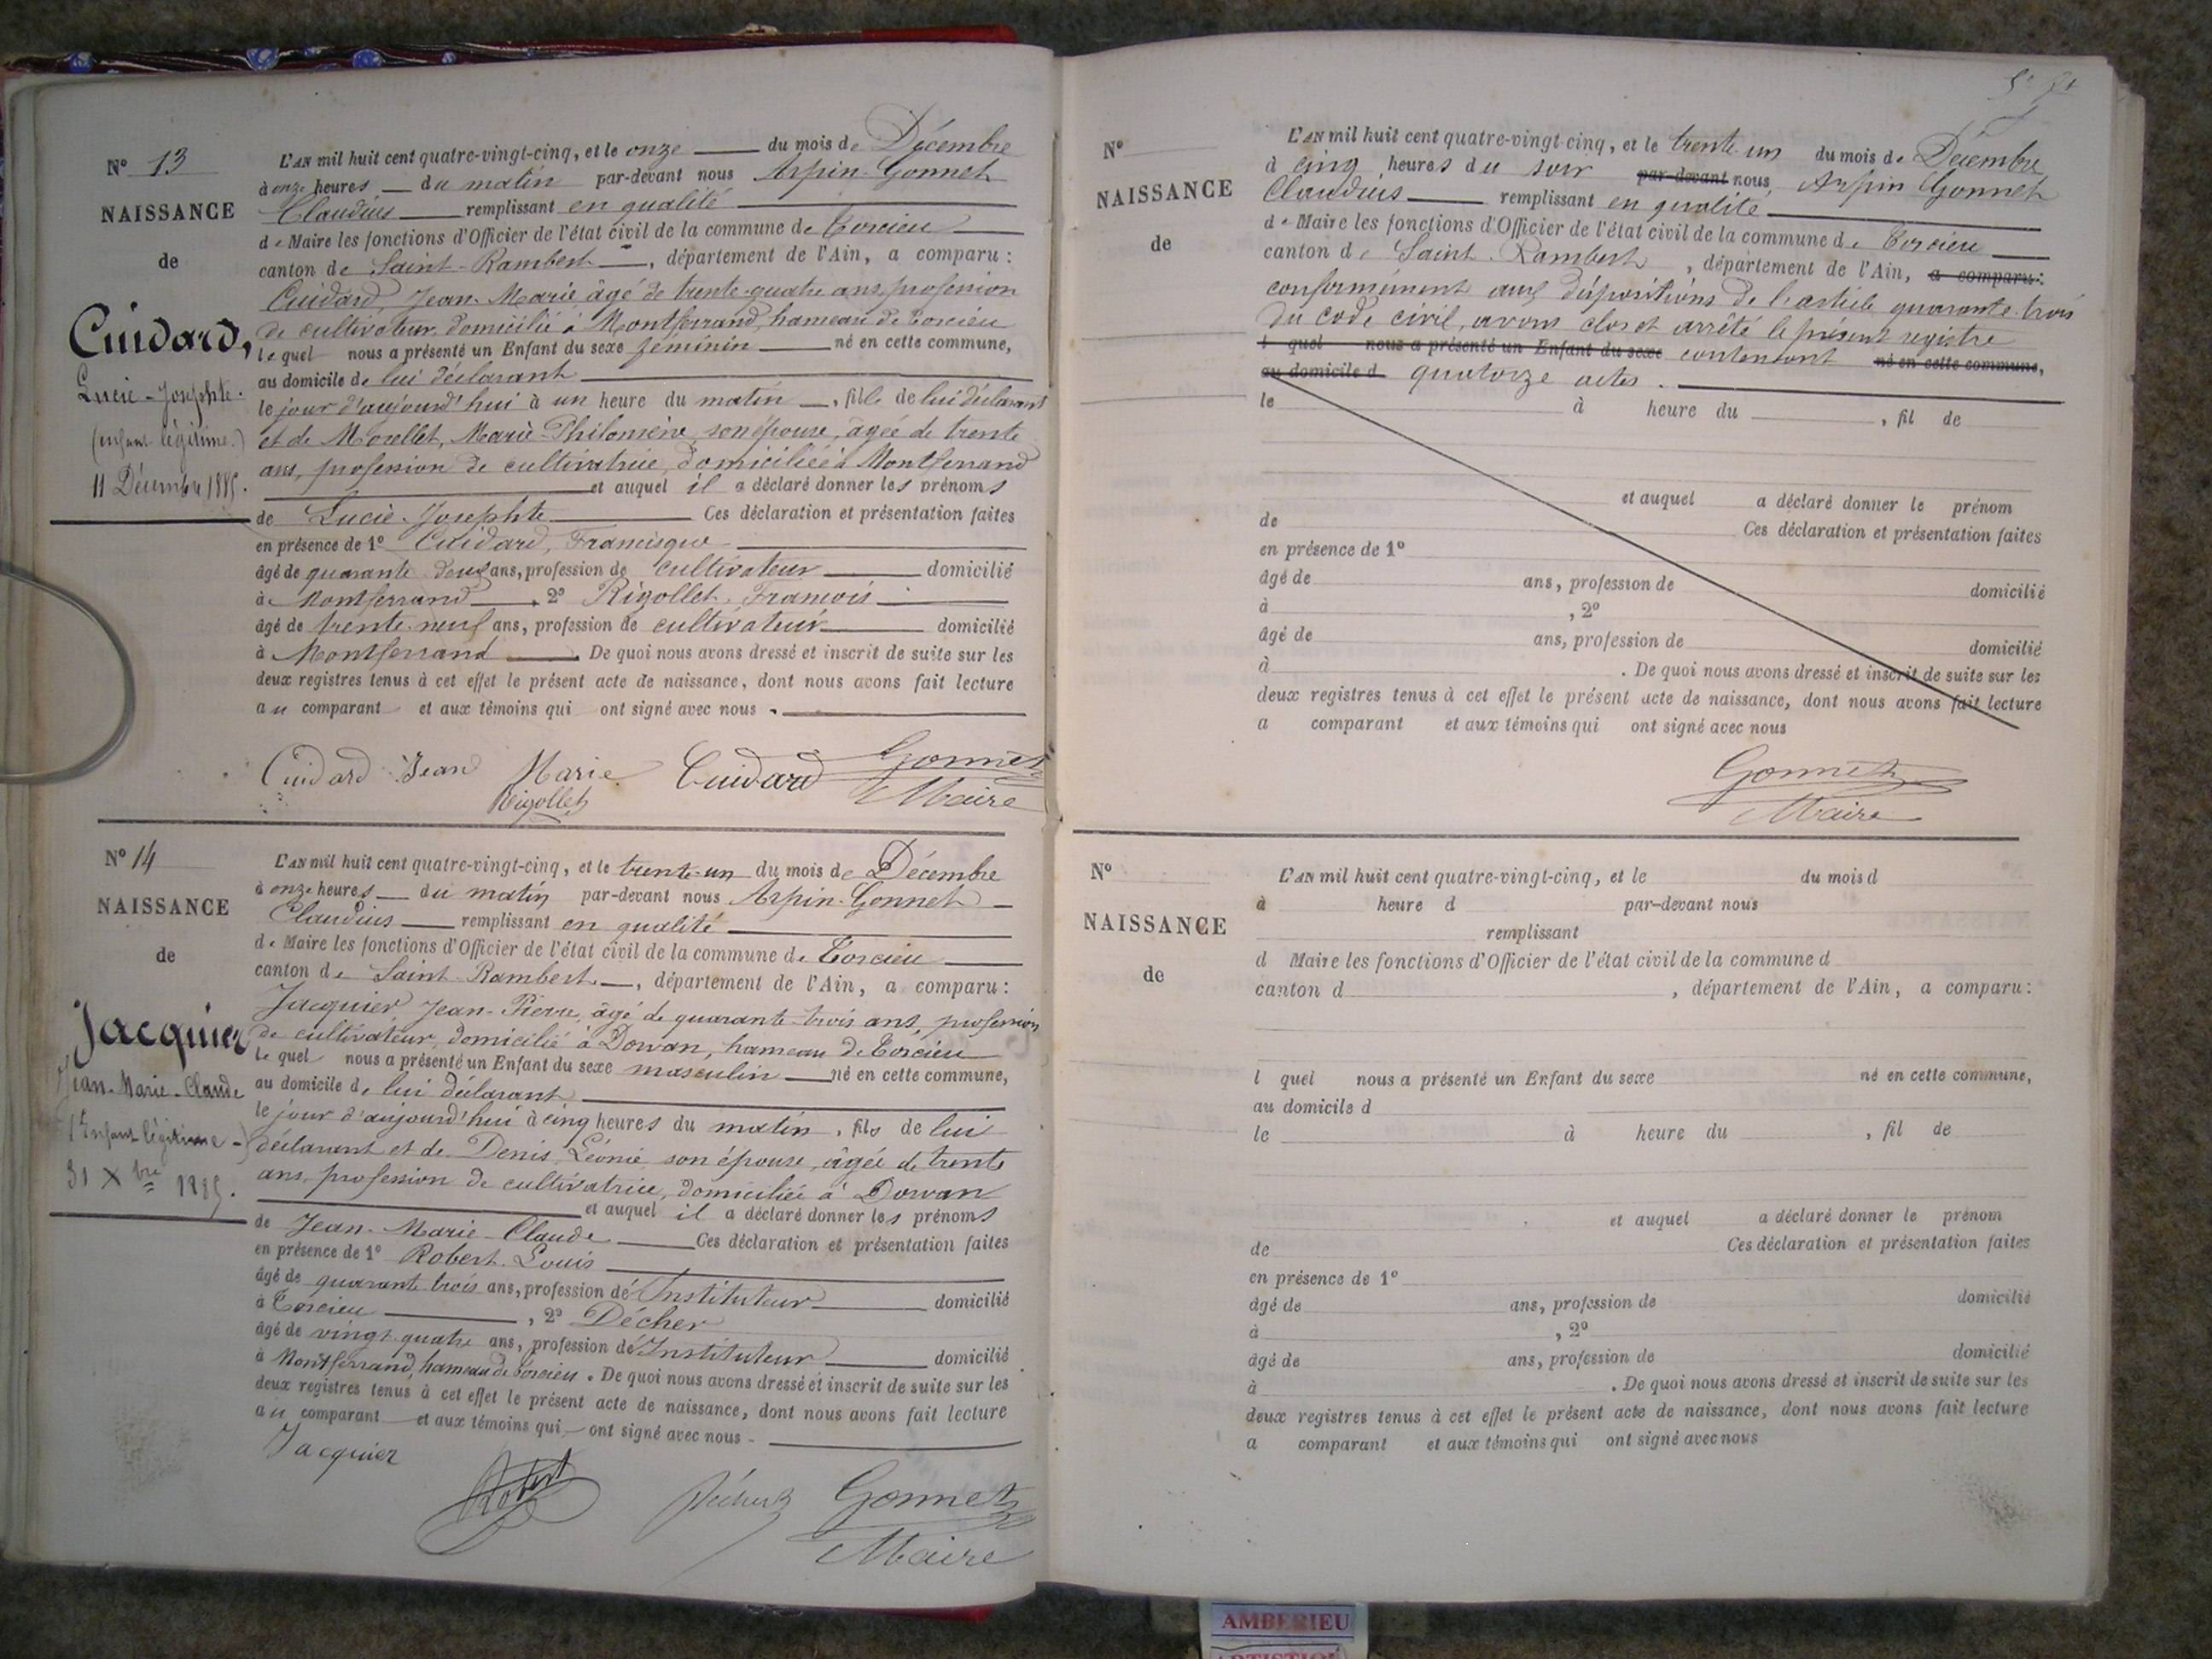 N° 13
NAISSANCE
de
Cuidard,
Lucie-Josephte.
(enfant légitime.)
11 Décembre 1885.
L'AN mil huit cent quatre-vingt-cinq, et le onze du mois de Décembre
à onze heures du matin par-devant nous Arpin-Gonnet
Claudius remplissant en qualité
de Maire les fonctions d'Officier de l'état civil de la commune de Torcieu
canton de Saint-Rambert, département de l'Ain, a comparu :
Cuidard, Jean-Marie âgé de trente-quatre ans, profession
de cultivateur, domicilié à Montferrand, hameau de Torcieu
lequel nous a présenté un Enfant du sexe féminin né en cette commune,
au domicile de lui déclarant
le jour d'aujourd'hui à un heure du matin, fille de lui déclarant
et de Morellet, Marie-Philomène, son épouse, âgée de trente
ans, profession de cultivatrice, domiciliée à Montferrand
et auquel il a déclaré donner les prénoms
de Lucie-Josephte Ces déclaration et présentation faites
en présence de 1° Cuidard, Francisque
âgé de quarante deux ans, profession de cultivateur domicilié
à Montferrand, 2° Rigollet, François
âgé de trente-neuf ans, profession de cultivateur domicilié
à Montferrand. De quoi nous avons dressé et inscrit de suite sur les
deux registres tenus à cet effet le présent acte de naissance, dont nous avons fait lecture
au comparant et aux témoins qui ont signé avec nous.
Cuidard Jean Marie Cuidard Gonnet
Rigollet Maire
N° 14
NAISSANCE
de
Jacquier
Jean-Marie-Claude
(Enfant légitime-)
31 Xbre 1885.
L'AN mil huit cent quatre-vingt-cinq, et le trente-un du mois de Décembre
à onze heures du matin par-devant nous Arpin-Gonnet
Claudius remplissant en qualité
de Maire les fonctions d'Officier de l'état civil de la commune de Torcieu
canton de Saint-Rambert, département de l'Ain, a comparu :
Jacquier Jean-Pierre, âgé de quarante-trois ans, profession
de cultivateur, domicilié à Dorvan, hameau de Torcieu
lequel nous a présenté un Enfant du sexe masculin né en cette commune,
au domicile de lui déclarant
le jour d'aujourd'hui à cinq heures du matin, fils de lui
déclarant et de Denis, Léonie, son épouse, âgée de trente
ans, profession de cultivatrice, domiciliée à Dorvan
et auquel il a déclaré donner les prénoms
de Jean-Marie-Claude Ces déclaration et présentation faites
en présence de 1° Robert Louis
âgé de quarante trois ans, profession de Instituteur domicilié
à Torcieu, 2° Décher
âgé de vingt-quatre ans, profession de Instituteur domicilié
à Montferrand, hameau de Torcieu. De quoi nous avons dressé et inscrit de suite sur les
deux registres tenus à cet effet le présent acte de naissance, dont nous avons fait lecture
au comparant et aux témoins qui ont signé avec nous
Jacquier
Robert Décher Gonnet
Maire
N°
NAISSANCE
de
L'AN mil huit cent quatre-vingt-cinq, et le trente-un du mois de Décembre
à cinq heures du soir par-devant nous, Arpin Gonnet
Claudius remplissant en qualité
de Maire les fonctions d'Officier de l'état civil de la commune de Torcieu
canton de Saint-Rambert, département de l'Ain, a comparu :
conformément aux dispositions de l'article quarante-trois
du code civil, avons clos et arrêté le présent registre
l quel nous a présenté un Enfant du sexe contenant né en cette commune,
au domicile d quatorze actes.
le à heure du , fil de
et auquel a déclaré donner le prénom
de Ces déclaration et présentation faites
en présence de 1°
âgé de ans, profession de domicilié
à , 2°
âgé de ans, profession de domicilié
à . De quoi nous avons dressé et inscrit de suite sur les
deux registres tenus à cet effet le présent acte de naissance, dont nous avons fait lecture
a comparant et aux témoins qui ont signé avec nous
Gonnet
Maire
N°
NAISSANCE
de
L'AN mil huit cent quatre-vingt-cinq, et le du mois d
à heure d par-devant nous
remplissant
d Maire les fonctions d'Officier de l'état civil de la commune d
canton d , département de l'Ain, a comparu :
l quel nous a présenté un Enfant du sexe né en cette commune,
au domicile d
le à heure du , fil de
et auquel a déclaré donner le prénom
de Ces déclaration et présentation faites
en présence de 1°
âgé de ans, profession de domicilié
à , 2°
âgé de ans, profession de domicilié
à . De quoi nous avons dressé et inscrit de suite sur les
deux registres tenus à cet effet le présent acte de naissance, dont nous avons fait lecture
a comparant et aux témoins qui ont signé avec nous
AMBERIEU